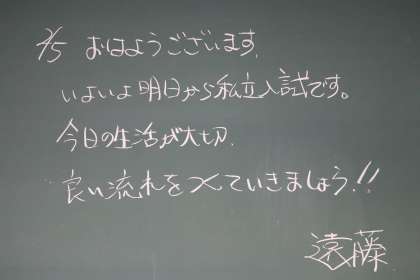 2/5 おはようございます.
いよいよ明日から私立入試です。
今日の生活が大切.
良い流れをつくていきましょう!!
遠藤